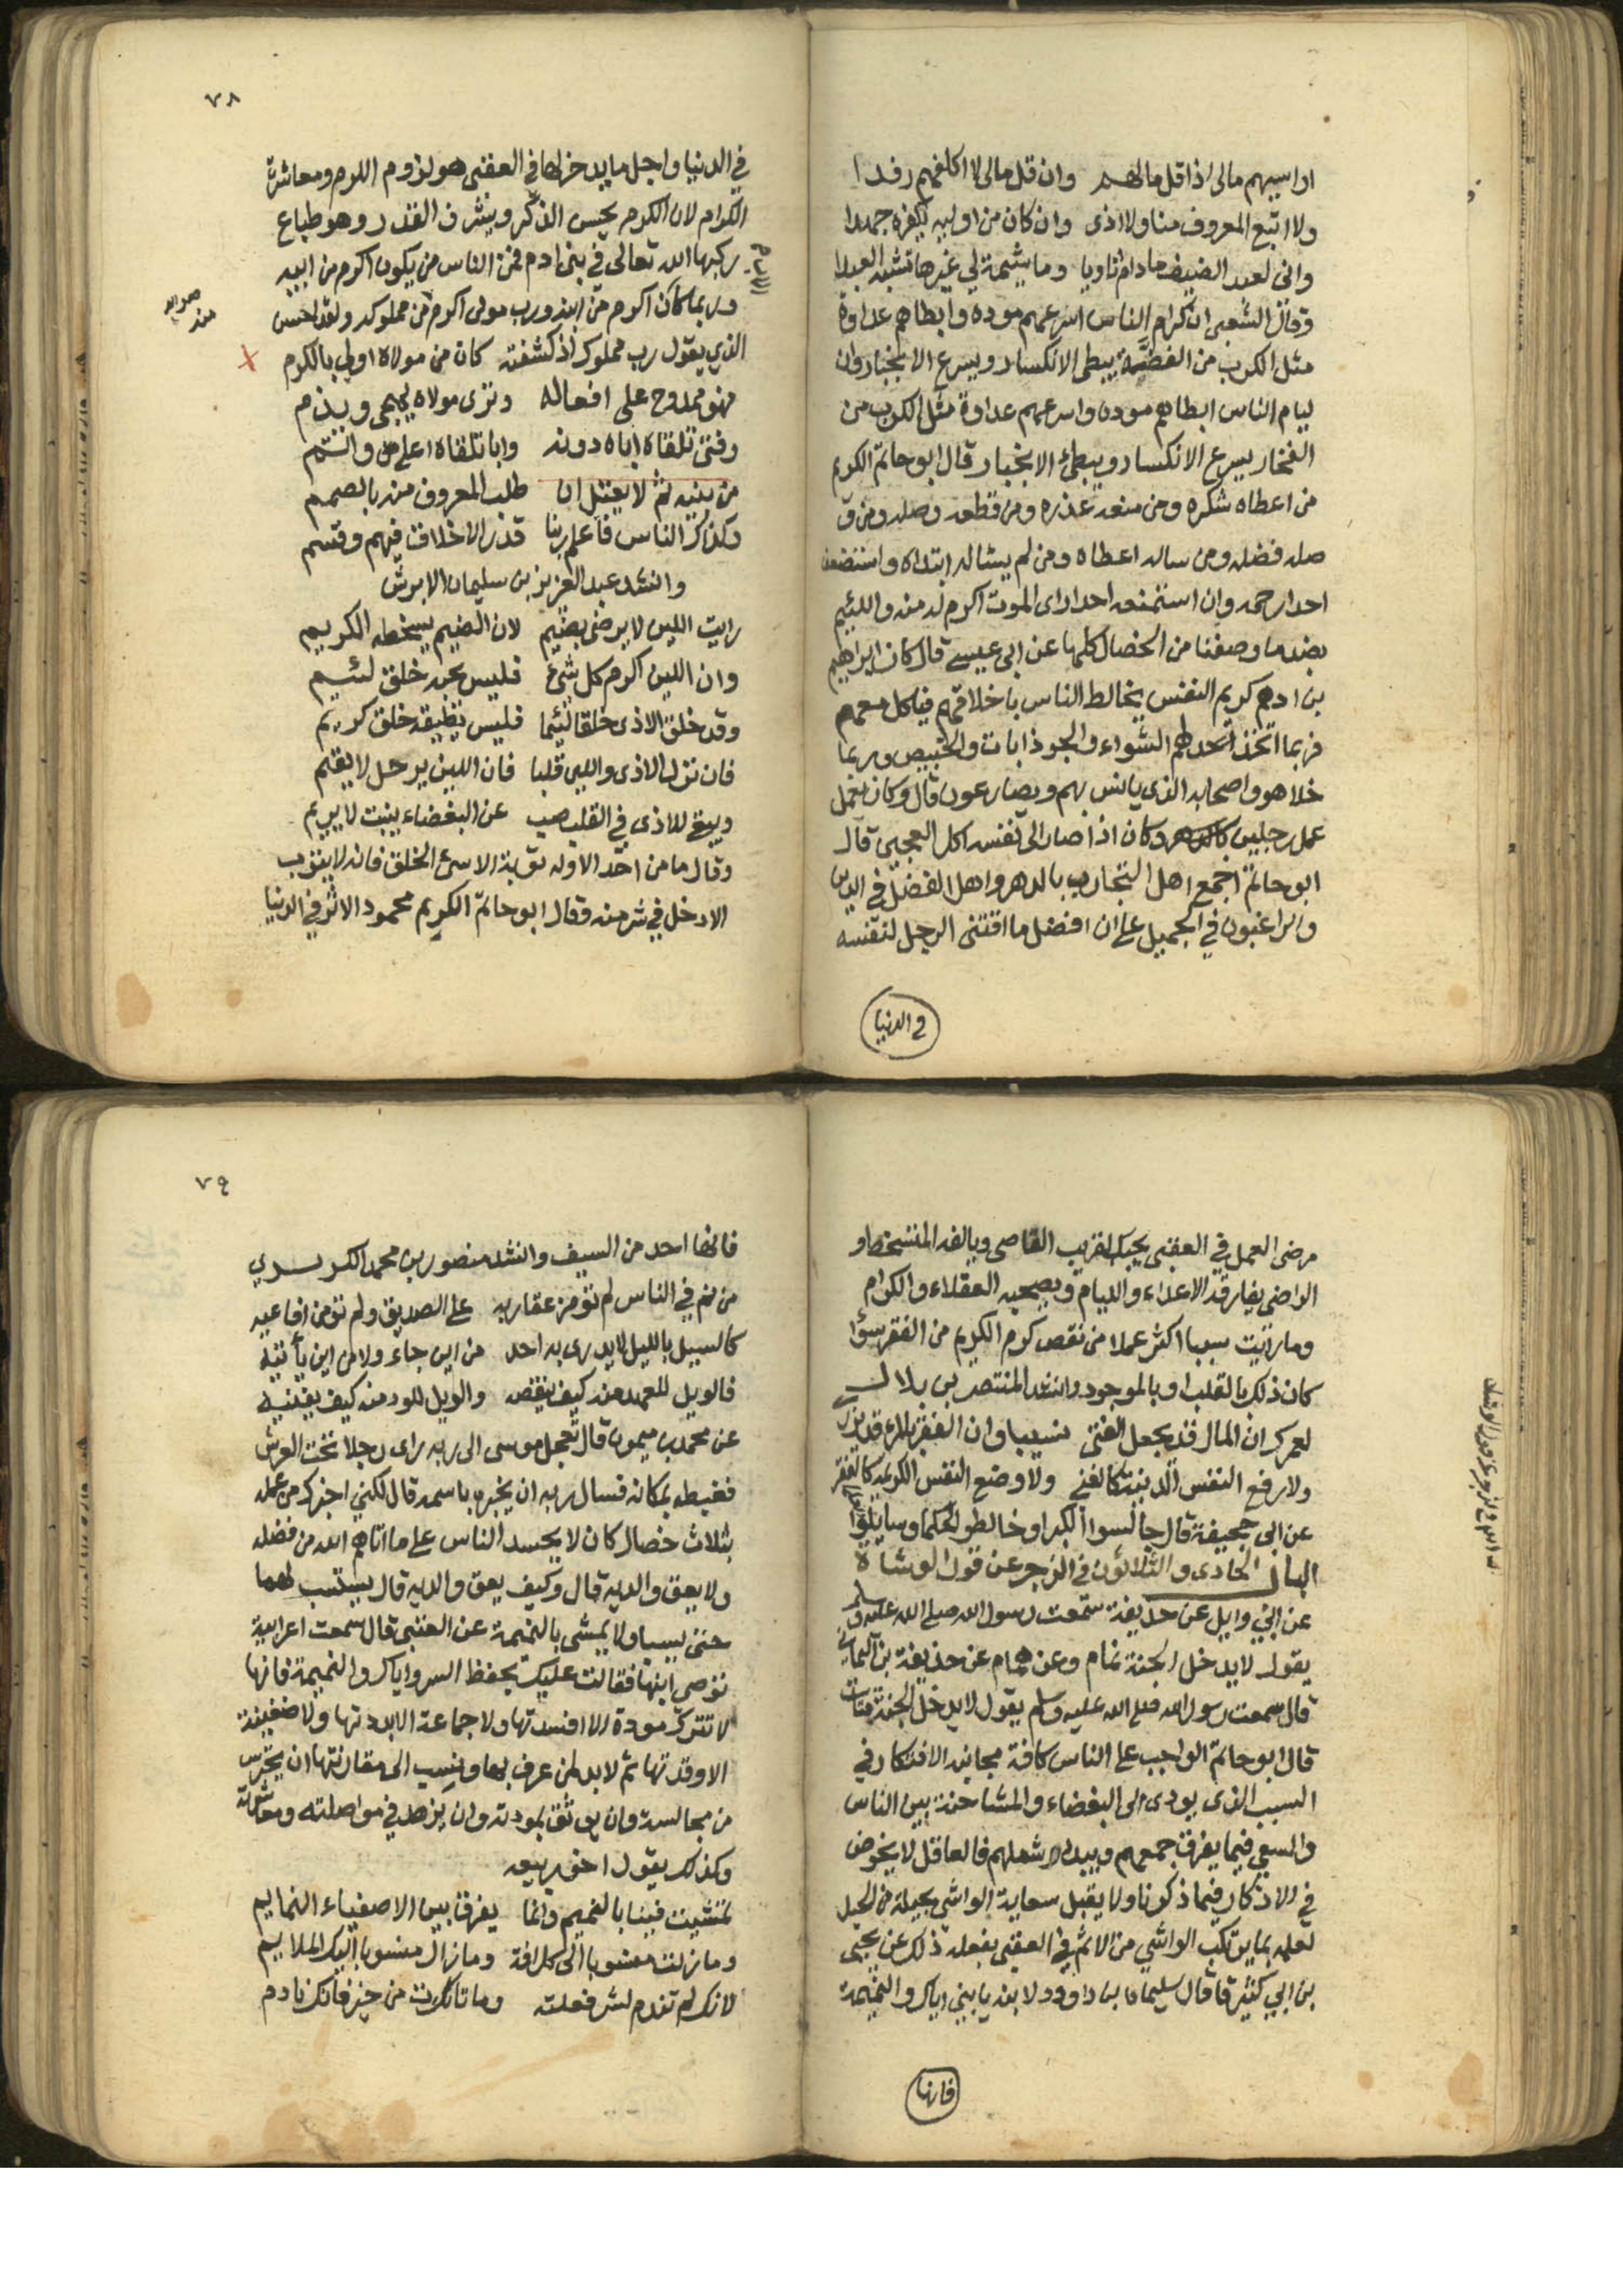 اواسيهم مالى اذا قل مالهم وان قل مالى لا اكلفهم رفدا
ولا اتبع المعروف منا ولا اذى وان كان من اوليه يكفره جهدا
وانى لعبد الضيف مادام ثاويا وما شيمة لي غيرها تشبه العبدا
وقال الشعبى ان كرام الناس اسرعهم موده وابطاهم عداوة
مثل الكوب من الفضة يبطى الانكسار ويسرع الانجبار وان
ليام الناس ابطاهم موده واسرعهم عداوة مثل الكوب من
الفخار يسرع الانكسار ويبطئ الانجبار قال ابو حاتم الكريم
من اعطاه شكره ومن منعه عذره ومن قطعه وصله ومن و
صله فضله ومن ساله اعطاه ومن لم يساله ابتداه واستضعف
احدا رحمه وان استضعفه احدا راى الموت اكرم له منه واللئيم
بضد ما وصفنا من الخصال كلها عن ابى عيسى قال كان ابراهيم
بن ادهم كريم النفس يخالط الناس باخلاقهم فياكل معهم
فربما اتخذ لهم الشواء والجوذابات والخبيص وربما
خلا هو واصحابه الذى يانس بهم ويصارعون قال وكان يعمل
عمل رجلين وكان اذا صار الى نفسه اكل العجين قال
ابو حاتم اجمع اهل التجارب بالدهر واهل الفضل في الدين
والراغبون في الجميل على ان افضل ما اقتنى الرجل لنفسه
في الدنيا
٧٨
في الدنيا واجل ما يدخر لها في العقبى هو لزوم الكرم ومعاشرة
الكرام لان الكرم يحسن الذكر ويشرف القدر وهو طباع
ركبها الله تعالى في بنى ادم فمن الناس من يكون اكرم من ابيه
وربما كان اكرم من ابنه ورب مولى اكرم من مملوكه ولقد احسن
الذي يقول رب مملوك اذ كشفته كان من مولاه اولى بالكرم
فهو ممدوح على افعاله وترى مولاه يهجى ويذم
وفتى تلقاه اباه دونه وابا تلقاه اعلى واتم
من بنيه ثم لا يعتل ان طلب المعروف منه بالصمم
وكذاك الناس فاعلم ربنا قدر الاخلاق فيهم وقسم
وانشد عبد العزيز بن سليمان الابرش
رايت اللين لا يرضى بضيم لان الضيم يسخطه الكريم
وان اللين اكرم كل شئ فليس يحبه خلق لئيم
وقد خلق الاذى خلقا لئيما فليس يطيقه خلق كريم
فان نزل الاذى واللين قلبا فان اللين يرحل لا يقيم
ويبقى للاذى في القلب صب عن البغضاء ينبت لا يريم
وقال ما من احد الا وله توبة الا سئ الخلق فانه لا يتوب
الا دخل في شر منه وقال ابو حاتم الكريم محمود الاثر في الدنيا
مرضى العمل في العقبى يحبك القريب القاصى ويالفه المتسخط و
الراضى يفارقه الاعداء والليام ويصحبه العقلاء والكرام
وما رايت سببا اكثر عملا من نقص كرم الكريم من الفقر سوا
كان ذلك بالقلب او بالموجود وانشد المنتصر بن بلال
لعمرك ان المال قد يجعل الفتى نسيبا وان الفقر بالمرء قد يزرى
ولا رفع النفس الدنيئة كالغنى ولا وضع النفس الكريمة كالفقر
عن ابى جحيفة قال جالسوا الكبرا وخالطوا الحكما وسايلوا
الباب الحادى والثلاثون في الزجر عن قول الوشاة
عن ابى وايل عن حذيفة سمعت رسول الله صلى الله عليه وسلم
يقول لا يدخل الجنة نمام وعن همام عن حذيفة بن اليمان
قال سمعت رسول الله صلى الله عليه وسلم يقول لا يدخل الجنة قتات
قال ابو حاتم الواجب على الناس كافة مجانبة الافتكار في
السبب الذى يودى الى البغضاء والمشاحنة بين الناس
والسعي فيما يفرق جمعهم ويبدد شملهم فالعاقل لا يخوض
في الاذكار فيما ذكرنا ولا يقبل سعاية الواشي بحيلة من الحيل
لعلمه بما يرتكب الواشي من الاثم في العقبى بفعله ذلك عن يحيى
بن ابي كثير قا قال سليمان بن داوود لابنه يا بنى اياك والنميمة
فانها
٧٩
فانها احد من السيف وانشد منصور بن محمد الكريزي
من نم في الناس لم تؤمن عقاربه على الصديق ولم تؤمن افاعيه
كالسيل بالليل لا يدرى به احد من اين جاء ولا من اين يأتيه
فالويل للعهد منه كيف ينقضه والويل للود منه كيف يفنيه
عن محمد بن ميمون قال تعجل موسى الى ربه راى رجلا تحت العرش
فغبطه بمكانه فسال ربه ان يخبره باسمه قال لكني اخبرك من عمله
بثلاث خصال كان لا يحسد الناس على ما اتاهم الله من فضله
ولا يعق والديه قال وكيف يعق والديه قال يستسب لهما
حتى يسبا ولا يمشى بالنميمة عن العتبى قال سمعت اعرابية
توصى ابنها فقالت عليك بحفظ السر واياك والنميمة فانها
لا تترك مودة الا افسدتها ولا جماعة الا بددتها ولا ضغينة
الا وقدتها ثم لا بد لمن عرف بها ونسب الى مقارفتها ان يحترس
من مجالسته وان يوثق بمودته وان يزهد في مواصلته ومعاشرته
وكذلك يقول اخو ربيعه
تمشيت فينا بالنميم وانما يفرق بين الاصفياء النمايم
وما زلت منسوبا الى كل افة وما زال منسوبا اليك الملايم
لانك لم تندم لشر فعلته وما تاتك من خير فانك نادم